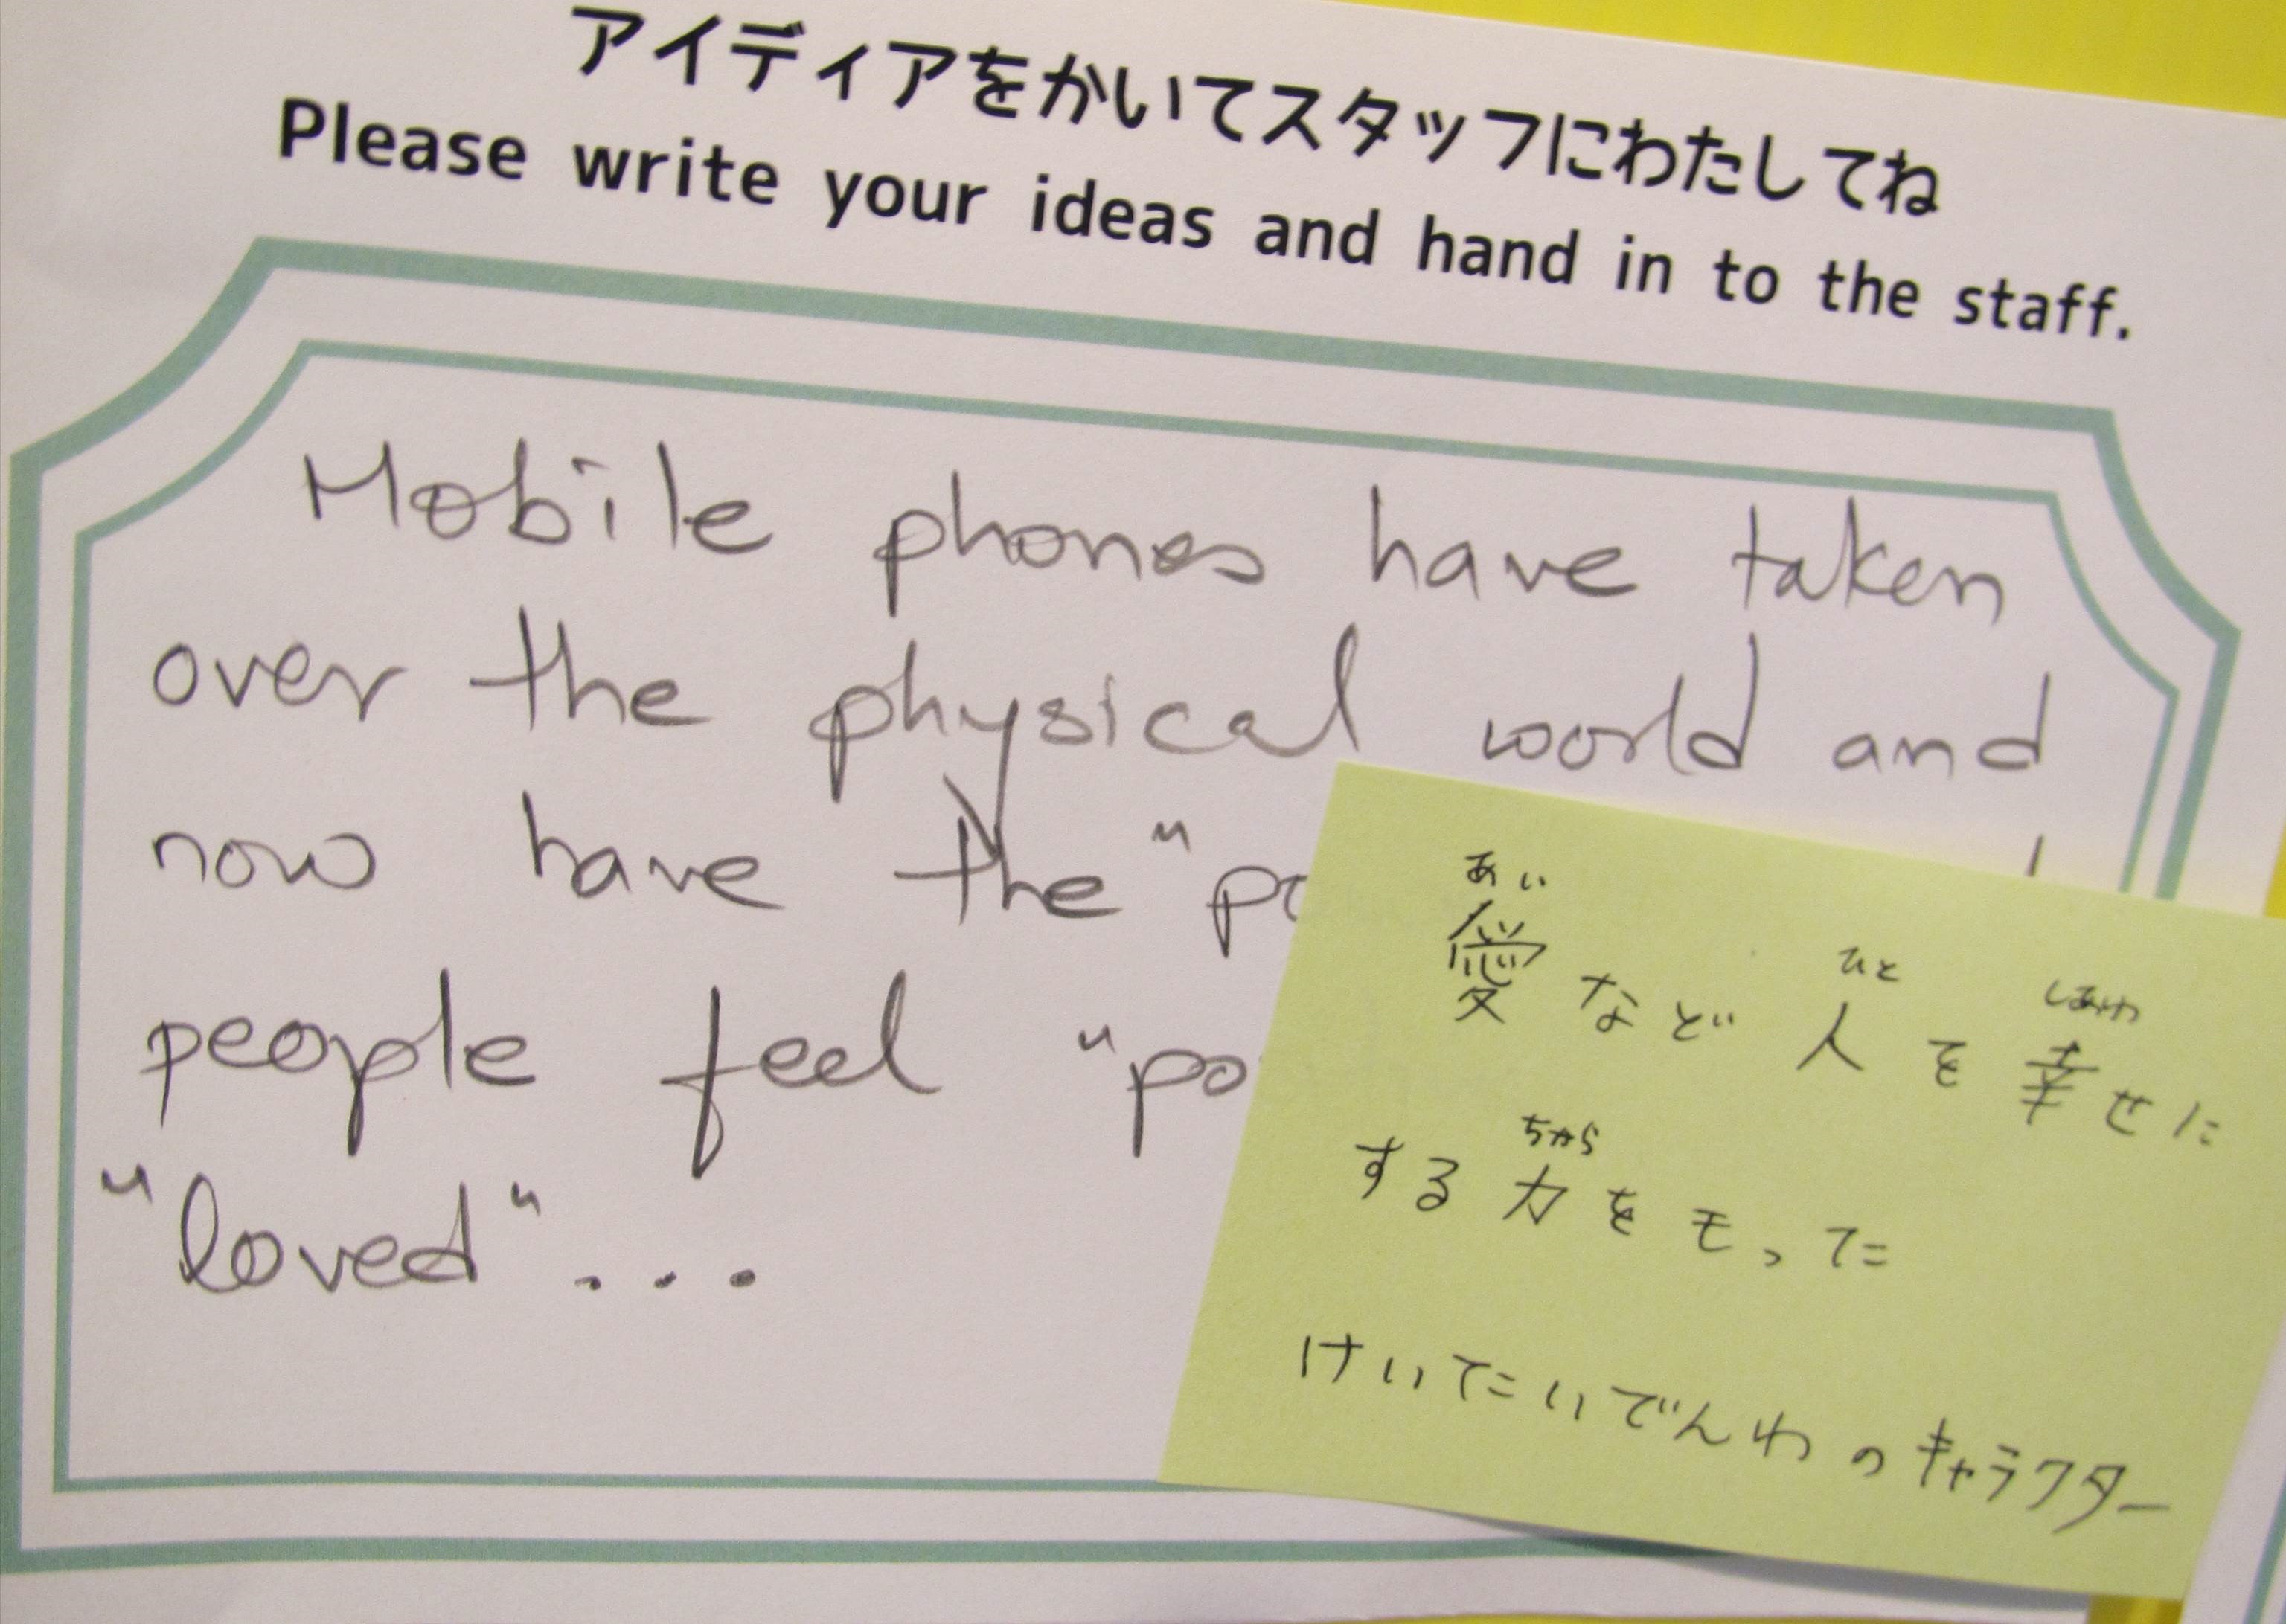 アイディアをかいてスタッフにわたしてね
Please write your ideas and hand in to the staff.
Mobile phones have taken
over the physical world and
now have the "
people feel "
"loved"...
あい ひと しあわ
愛など人を幸せに
ちから
する力をモった
けいたいでんわのキャラクター